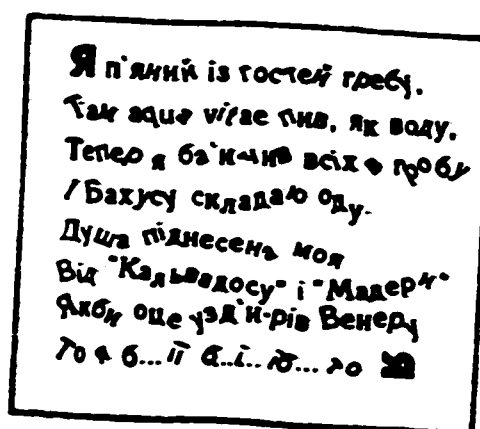 Я п'яний із гостей гребу.
Там aqua vitae пив, як воду.
Тепер я ба'и-чив всіх в гробу
І Бахусу складаю оду.
Душа піднесена моя
Від "Кальвадосу" і "Мадери"
Якби оце узд'и-рів Венеру
То я б... її б...і... ю... то Я